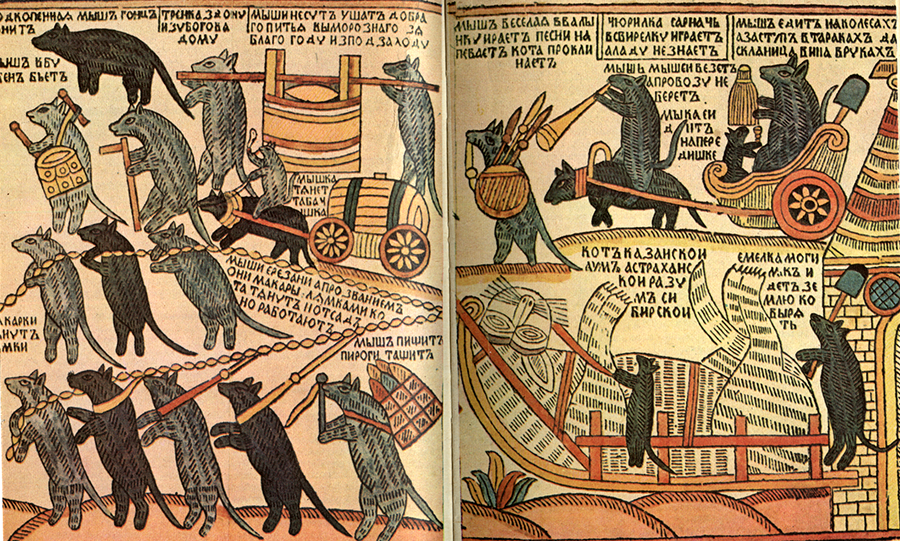 ОДКОПЕННАЯ МЫШЪ ГОНЦЪ
ОНИТЪ
ТРЕНКА З ДОНУ
ИЗУБОГОВА
ДОМУ
МЫШИ НЕСУТ УШАТ ДОБРА
ГО ПИТЬЯ ВЫМОРОЗНАГО ЗА
БЛАГО ГОДУ ИЗ ПОД ЗАХОДУ
ЫШЪ ВБУ
БЕНЪ БЬЕТЪ
МЫШКА
ТЯНЕТ
ТАБАЧ
ИШКА
МЫШИ ЕРЕЗАНИ АПРОЗВАНИЕМЪ
ОНИ МАКАРЫ ЛЯМКАМИ КО
ТА ТЯНУТЪ ПОТСАДЪ
НО РАБОТАЮТЪ
АКАРКИ
НУТЪ
МКИ
МЫШЪ ПИЩИТЪ
ПИРОГИ ТАЩИТЪ
МЫШЪ ВЕСЕЛАЯ ВВАЛЫ
НКУ ИГРАЕТЪ ПЕСНИ НА
ПЕВАЕТЪ КОТА ПРОКЛИ
НАЕТЪ
ЧЮРИЛКА САРНАЧЬ
ВСВИРЕЛКУ ИГРАЕТЪ
АЛАДУ НЕЗНАЕТЪ
МЫШЬ ЕДИТЪ НАКОЛЕСАХЪ
АЗАСТУП ВТАРАКАХЪ ДА
СКЛАНИЦА ВИНА ВРУКАХЪ
МЫШЬ МЫШСИ ВЕЗЕТЪ
АПРОВОЗУ НЕ
БЕРЕТЪ
МЫКА СИ
ДИТЪ
НАПЕРЕ
ДИШКЕ
КОТЪ КАЗАНСКОИ
А УМЪ АСТРАХАНС
КОИ РАЗУ
МЪ СИ
БИРСКОИ
ЕМЕЛКА МОГИ
ЛЯКЪ ИД
ЕТЪ ЗЕ
МЛЮ КО
ВЫРЯ
ТЬ